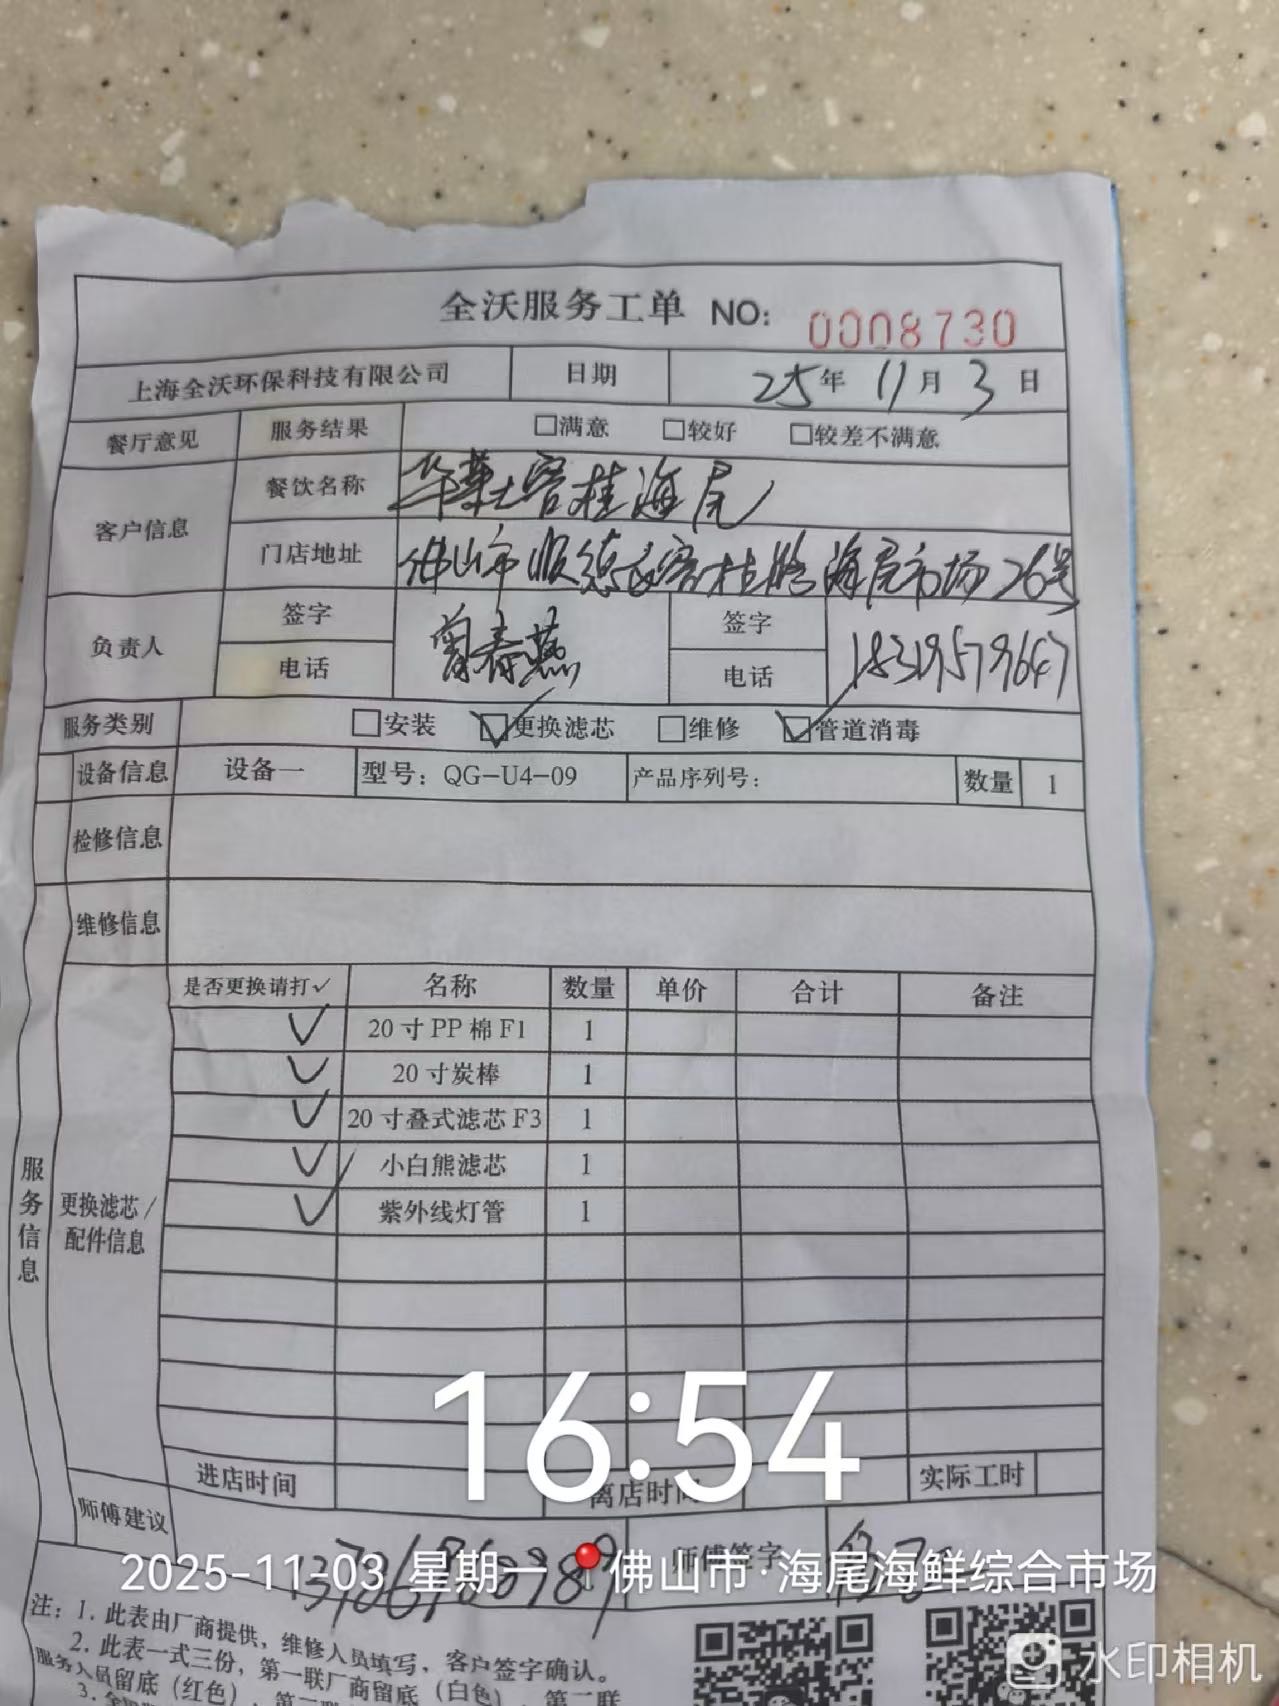 全沃服务工单 NO: 0008730
上海全沃环保科技有限公司 日期 25年 11月 3日
餐厅意见 服务结果 □满意 □较好 □较差不满意
客户信息 餐饮名称 华莱士容桂海尾
门店地址 佛山市顺德区容桂 海尾市场26号
负责人 签字 曾春燕 签字
电话 电话 18319579647
服务类别 □安装 ☑更换滤芯 □维修 ☑管道消毒
设备信息 设备一 型号：QG-U4-09 产品序列号： 数量 1
检修信息
维修信息
是否更换请打✓ 名称 数量 单价 合计 备注
✓ 20寸PP棉F1 1
✓ 20寸炭棒 1
✓ 20寸叠式滤芯F3 1
✓ 小白熊滤芯 1
✓ 紫外线灯管 1
服务信息
更换滤芯/
配件信息
16:54
进店时间 离店时间 实际工时
师傅建议 师傅签字
2025-11-03 星期一 佛山市·海尾海鲜综合市场
注：1. 此表由厂商提供，维修人员填写，客户签字确认。
2. 此表一式三份，第一联厂商留底（白色），第二联
服务人员留底（红色），第
3.
水印相机